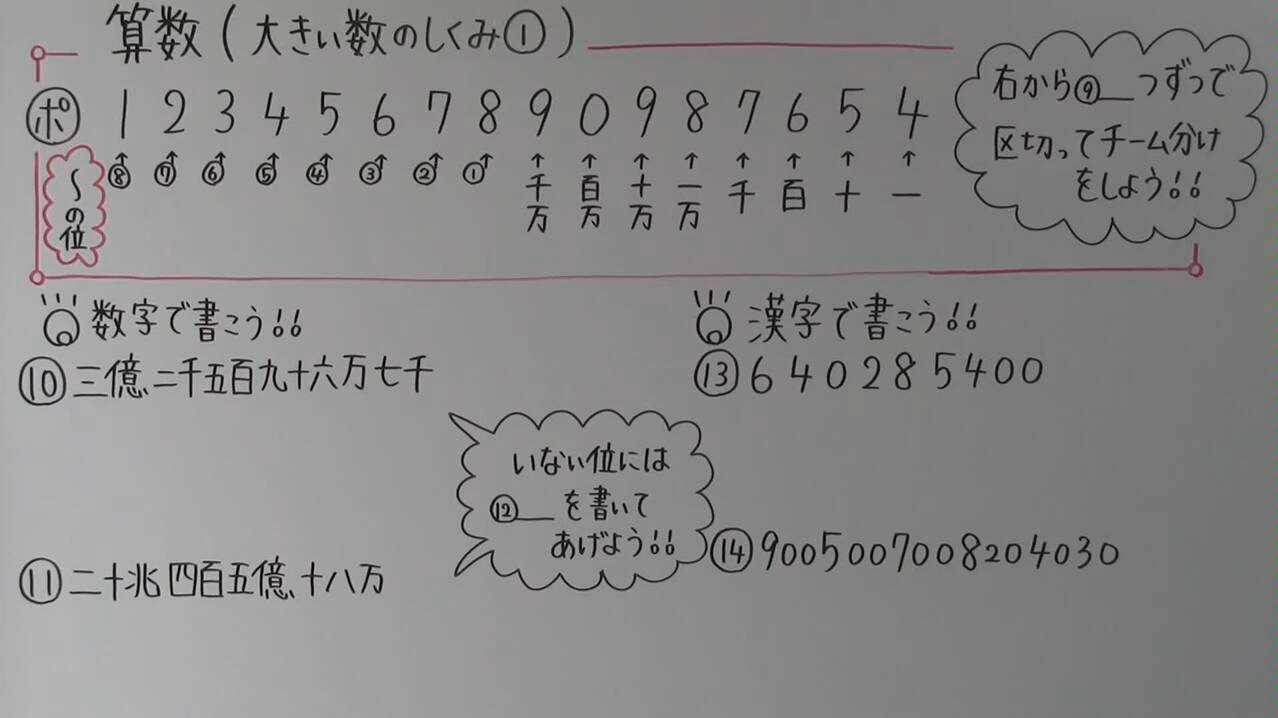 算数(大きい数のしくみ①)
ポ 1 2 3 4 5 6 7 8 9 0 9 8 7 6 5 4
〜の位
⑧ ⑦ ⑥ ⑤ ④ ③ ② ① 千万 百万 十万 一万 千 百 十 一
右から⑨__つずつで
区切ってチーム分け
をしよう!!
数字で書こう!!
⑩三億二千五百九十六万七千
⑪二十兆四百五億十八万
いない位には
⑫__を書いて
あげよう!!
漢字で書こう!!
⑬640285400
⑭9005007008204030